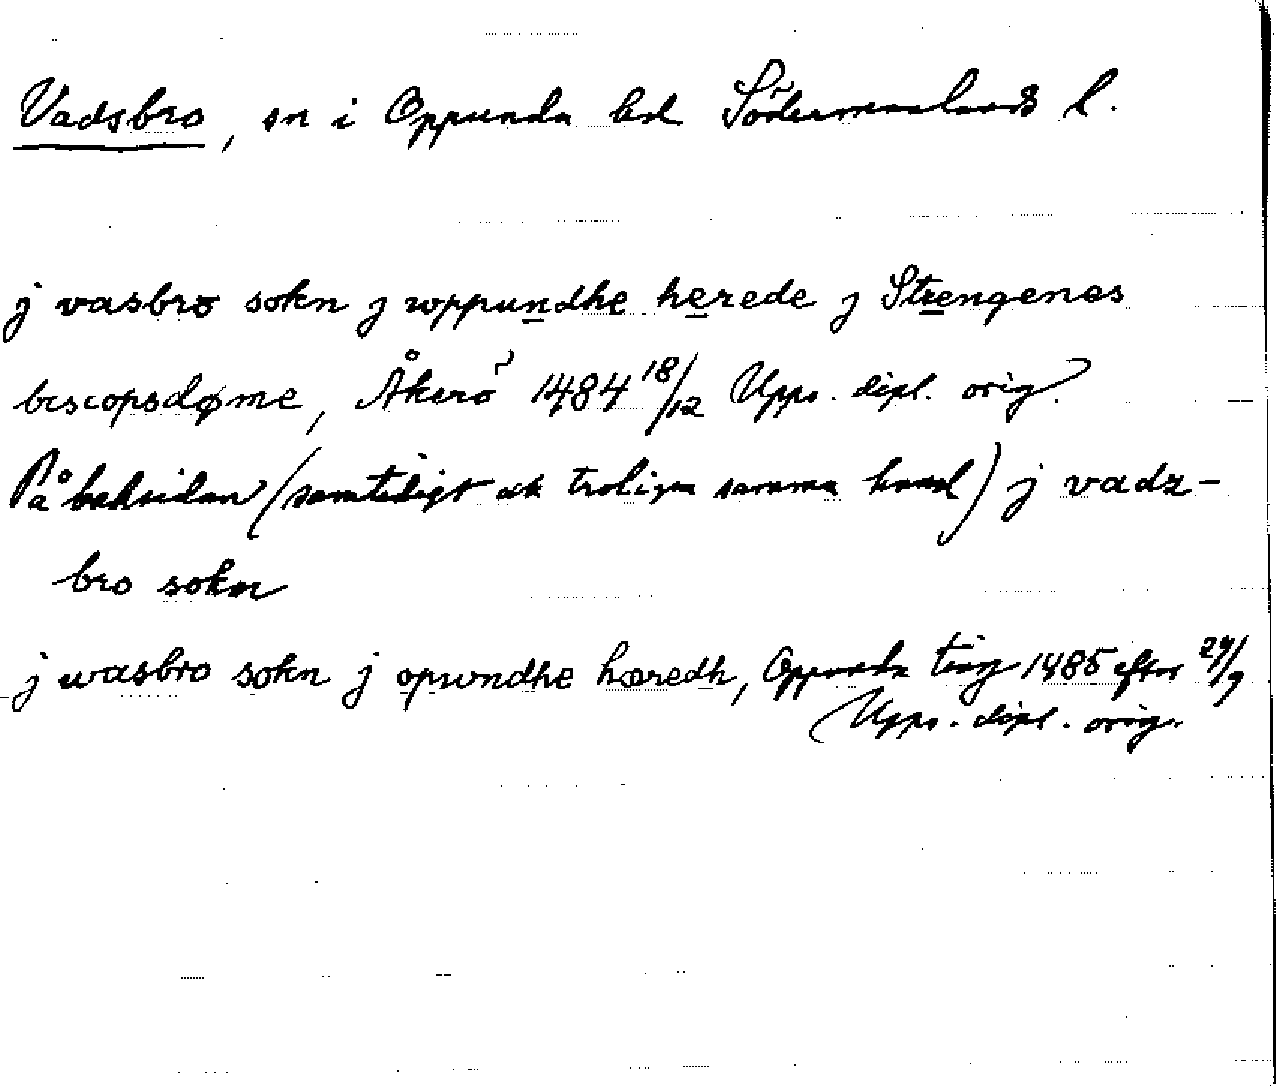 Vadsbro, sn i Oppunda hd Södermanlands l.
j vasbro sokn j wppundhe herede j Strengenes
biscopsdøme, Åkerö 1484 18/12 Upps. dipl. orig.
På baksidan (samtidigt och troligen samma hand) j vadz-
bro sokn
j wasbro sokn j opwndhe hæredh, Oppunda ting 1485 efter 29/9
Upps. dipl. orig.